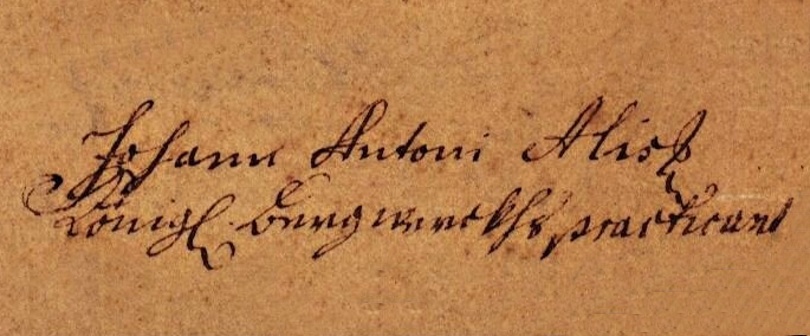 Johann Antoni Alisß
Königl. bergwerckhs practicant